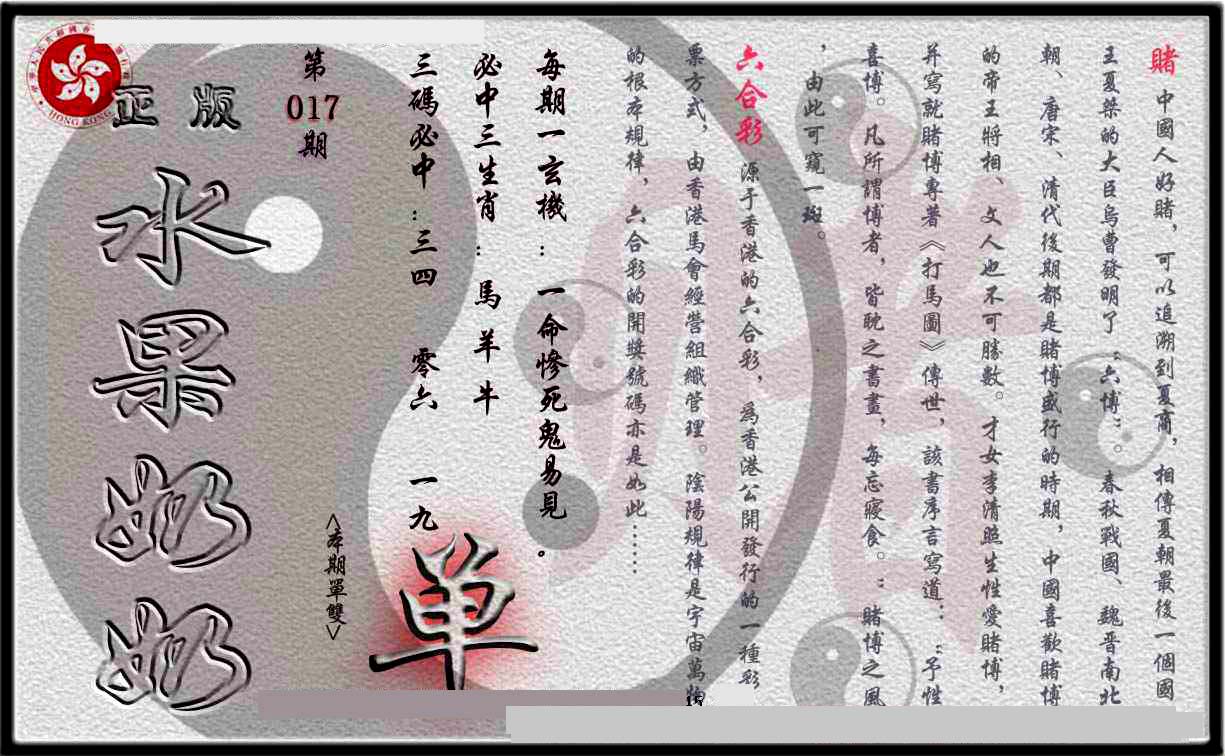 賭 中國人好賭，可以追溯到夏商，相傳夏朝最後一個國
王夏桀的大臣烏曹發明了“六博”。春秋戰國、魏晋南北
朝、唐宋、清代後期都是賭博盛行的時期，中國喜歡賭博
的帝王將相、文人也不可勝數。才女李清照生性愛賭博，
并寫就賭博專著《打馬圖》傳世，該書序言寫道：“予性
喜博。凡所謂博者，皆耽之書畫，每忘寢食。”賭博之風
，由此可窺一斑。
六合彩 源于香港的六合彩，爲香港公開發行的一種彩
票方式，由香港馬會經營組織管理。陰陽規律是宇宙萬物
的根本規律，六合彩的開獎號碼亦是如此……
每期一玄機：一命慘死鬼易見。
必中三生肖：馬羊牛
三碼必中：三四 零六 一九
<本期單雙>
单
第
017
期
正版
水果奶奶
HONG KONG